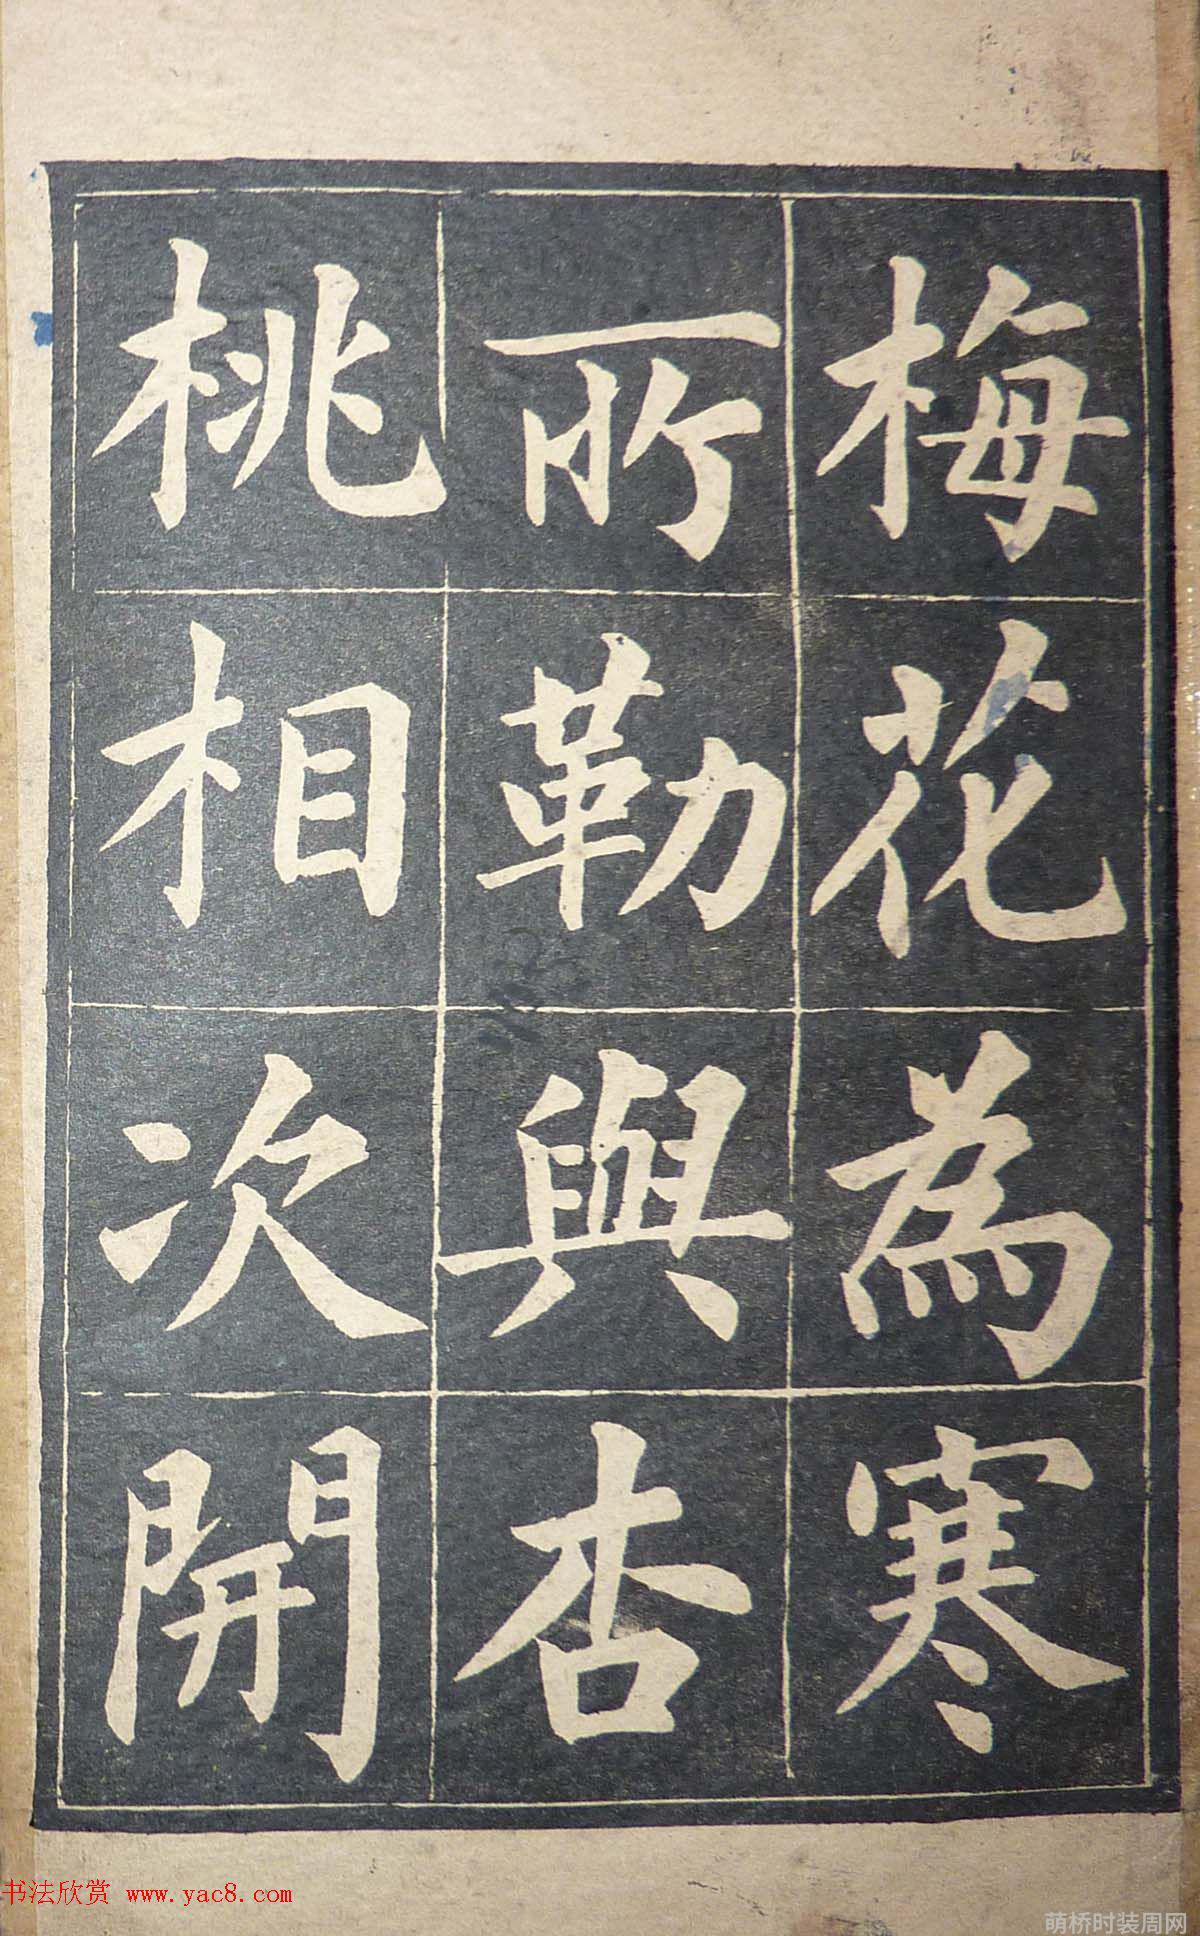 梅花為寒
所勒與杏
桃相次開
书法欣赏 www.yac8.com
萌桥时装周网